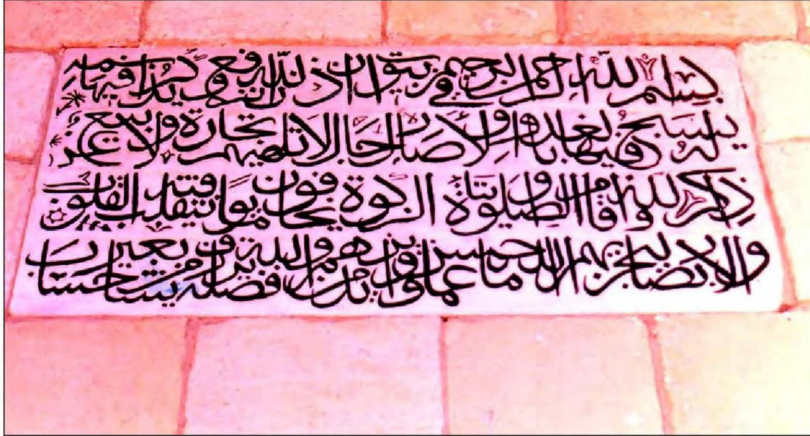 بسم الله الرحمن الرحيم في بيوت اذن الله ان ترفع ويذكر فيها اسمه
يسبح له فيها بالغدو والاصال رجال لا تلهيهم تجارة ولا بيع عن
ذكر الله واقام الصلوة وايتاء الزكوة يخافون يوما تتقلب فيه القلوب
والابصار ليجزيهم الله احسن ما عملوا ويزيدهم من فضله والله يرزق من يشاء بغير حساب